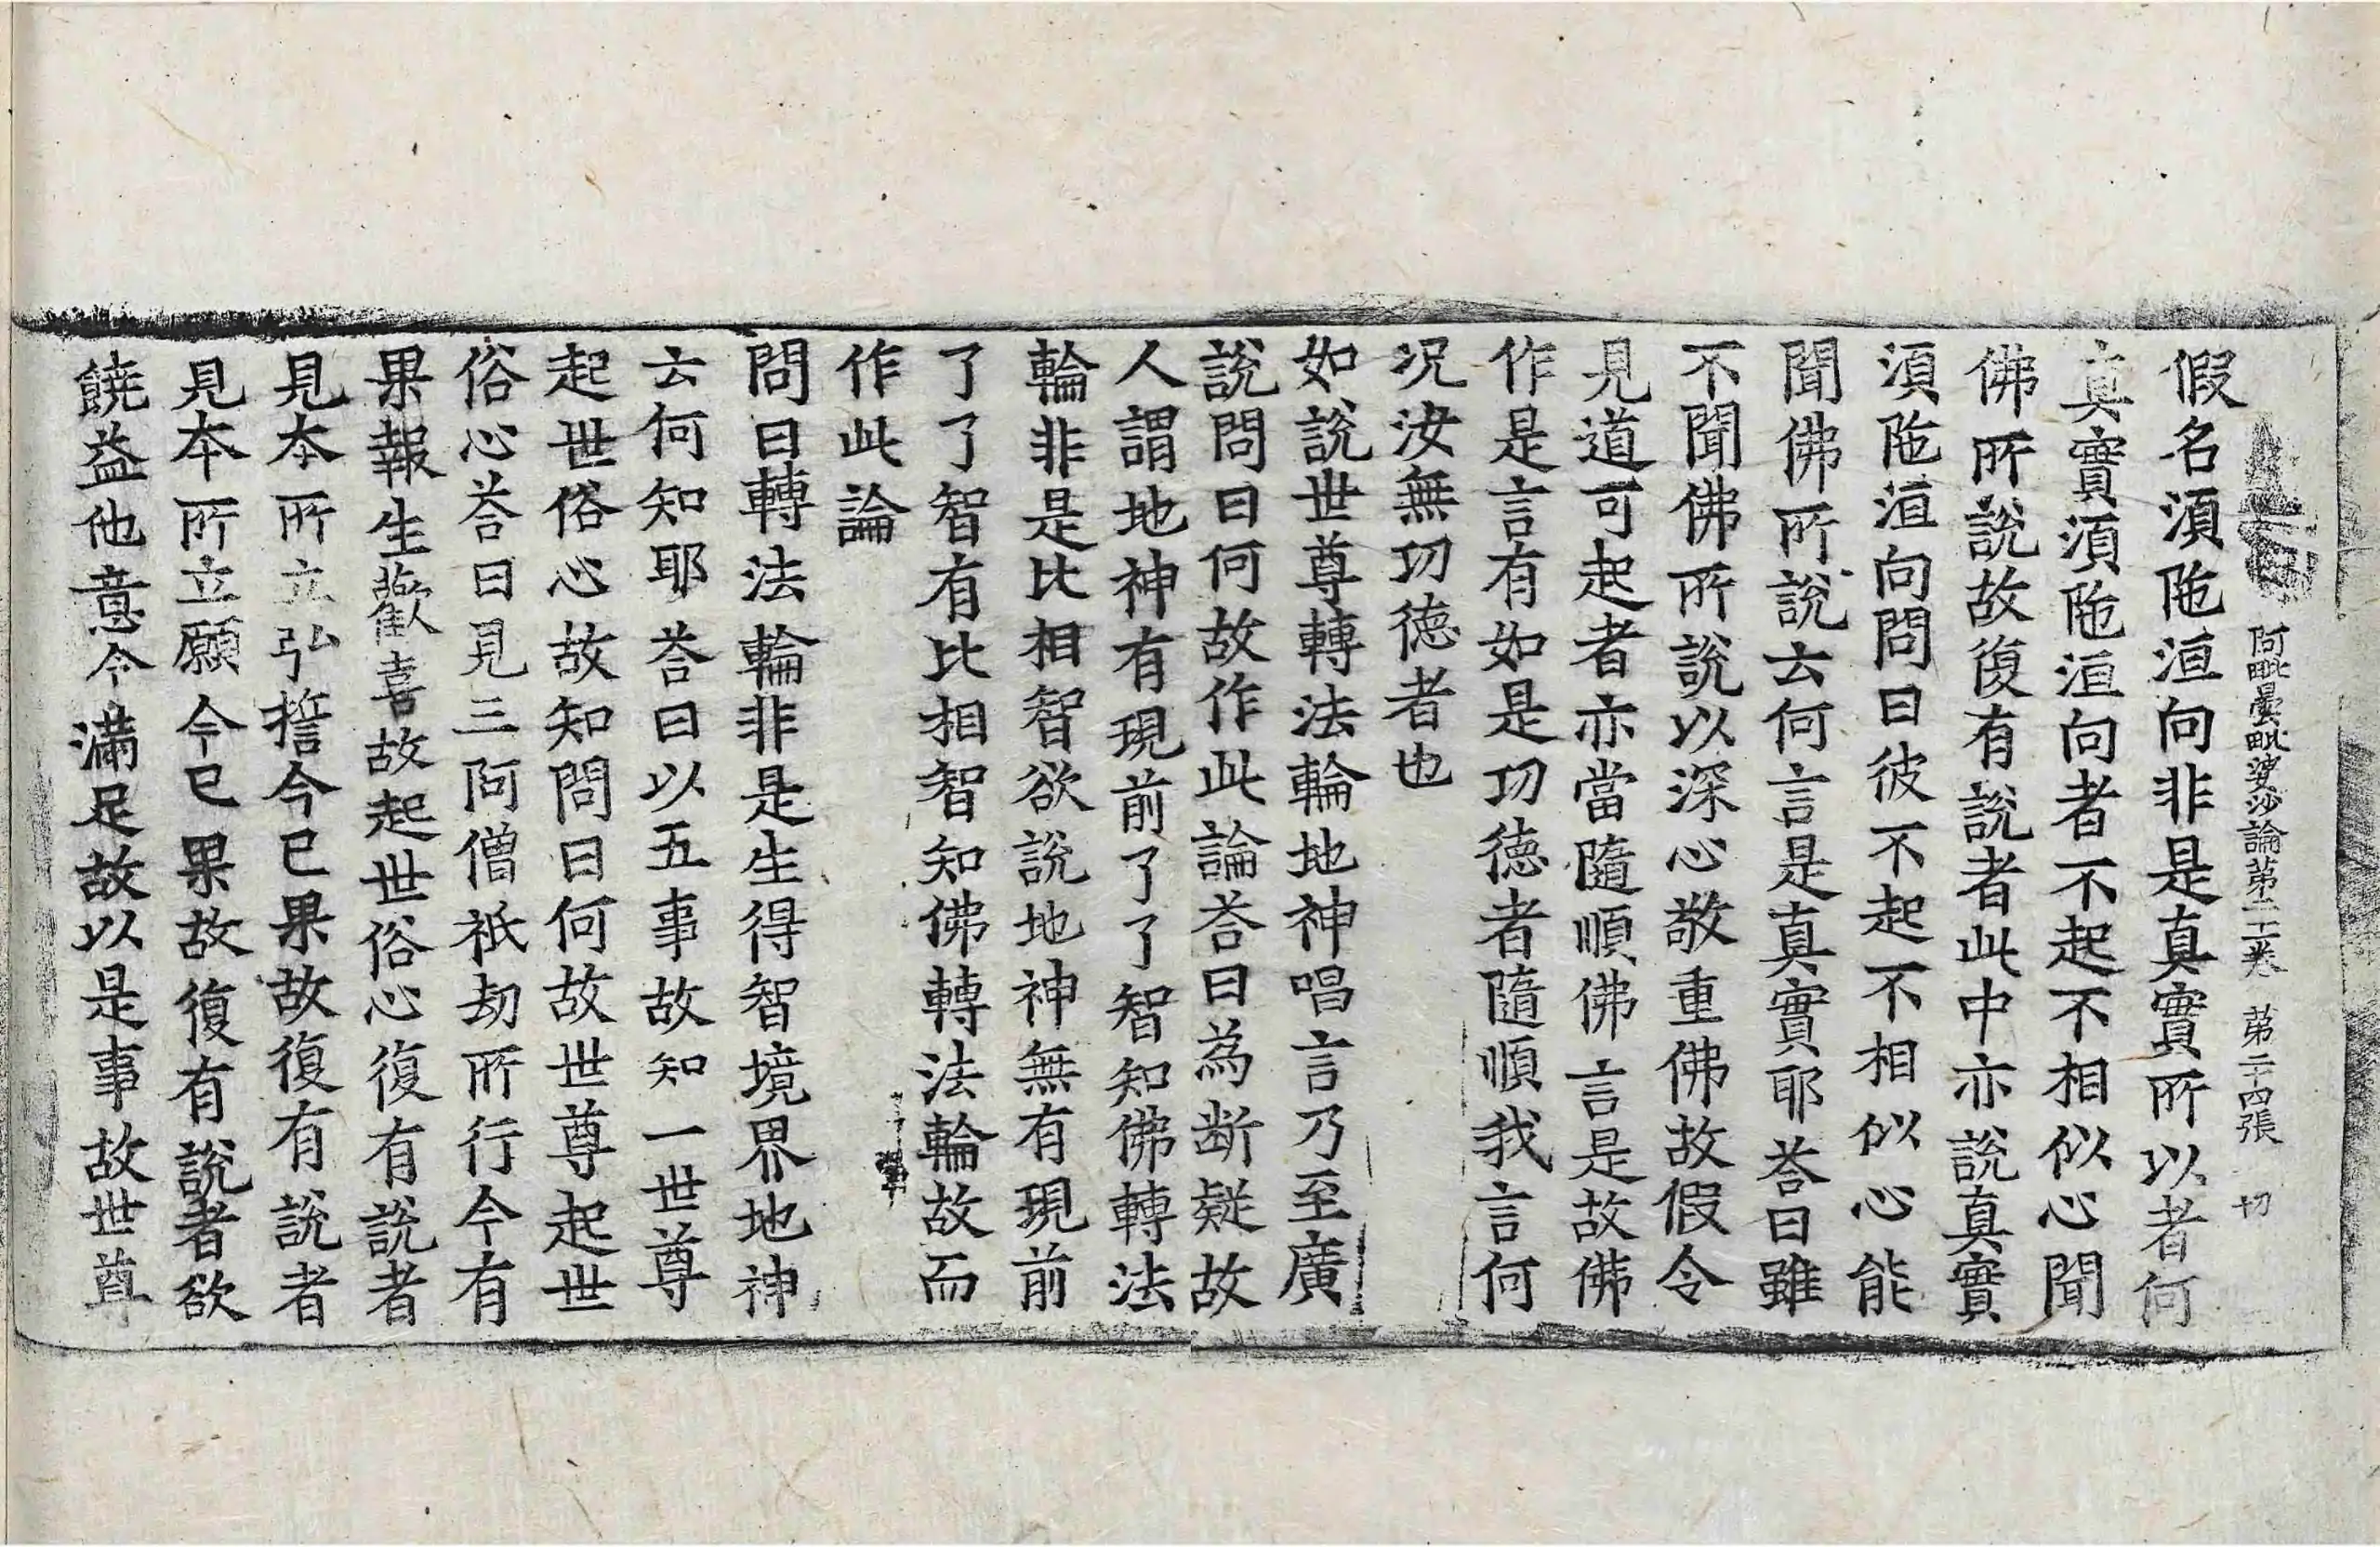 阿毗曇毗婆沙論第二十一卷 第二十四張 切
假名湏陁洹向非是真實所以者何
真實湏陁洹向者不起不相似心聞
佛所說故復有說者此中亦說真實
湏陁洹向問曰彼不起不相似心能
聞佛所說云何言是真實耶荅曰雖
不聞佛所說以深心敬重佛故假令
見道可起者亦當隨順佛言是故佛
作是言有如是功德者隨順我言何
况汝無功德者也
如說世尊轉法輪地神唱言乃至廣
說問曰何故作此論荅曰為斷疑故
人謂地神有現前了了智知佛轉法
輪非是比相智欲說地神無有現前
了了智有比相智知佛轉法輪故而
作此論
問曰轉法輪非是生得智境界地神
云何知耶荅曰以五事故知一世尊
起世俗心故知問曰何故世尊起世
俗心荅曰見三阿僧祇劫所行今有
果報生歡喜故起世俗心復有說者
見本所立弘誓今已果故復有說者
見本所立願今已果故復有說者欲
饒益他意今滿足故以是事故世尊